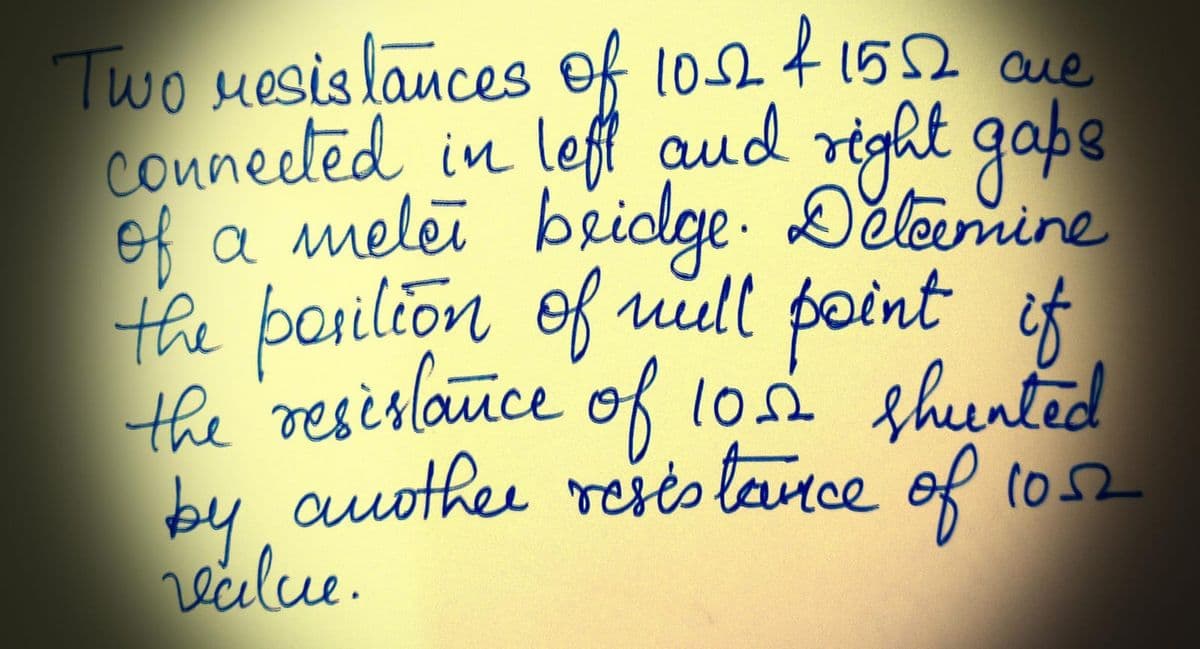 Two resistances of 10Ω & 15Ω are
connected in left and right gaps
of a meter bridge. Determine
the position of null point if
the resistance of 10Ω shunted
by another resistance of 10Ω
value.